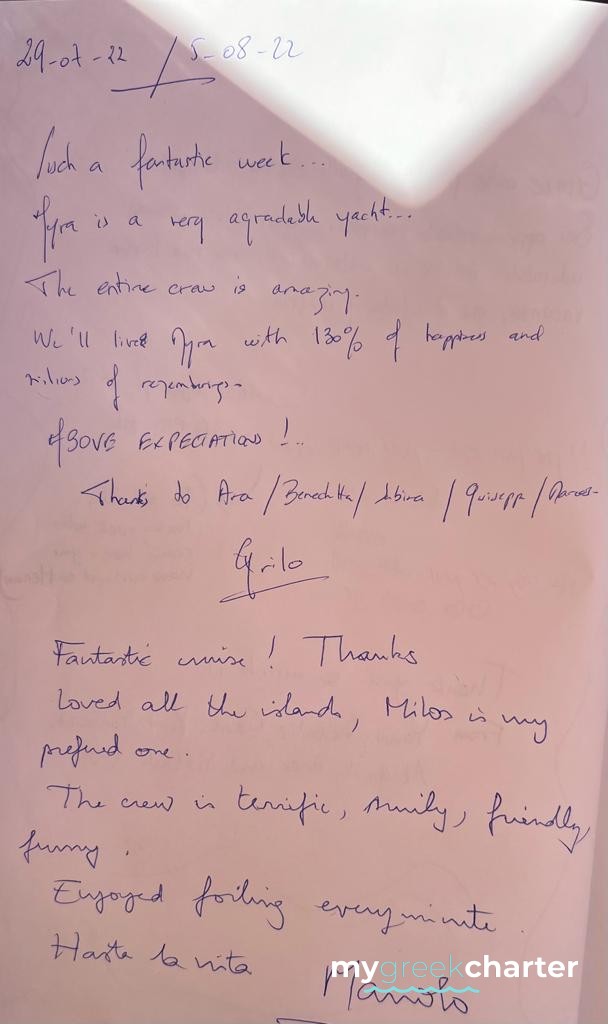 29-07-22 / 5-08-22
Such a fantastic week...
Myra is a very agradable yacht...
The entire crew is amazing.
We'll lived Myra with 130% of happiness and
milions of remembrings-
ABOVE EXPECTATIONS!..
Thanks do Ara / Benedetta / / Quisepp /
Grilo
Fantastic cruise! Thanks
Loved all the islands, Milos is my
prefered one.
The crew is terrific, smily, friendly,
funny.
Enjoyed foiling every minute.
Hasta la vista
Manolo
mygreekcharter